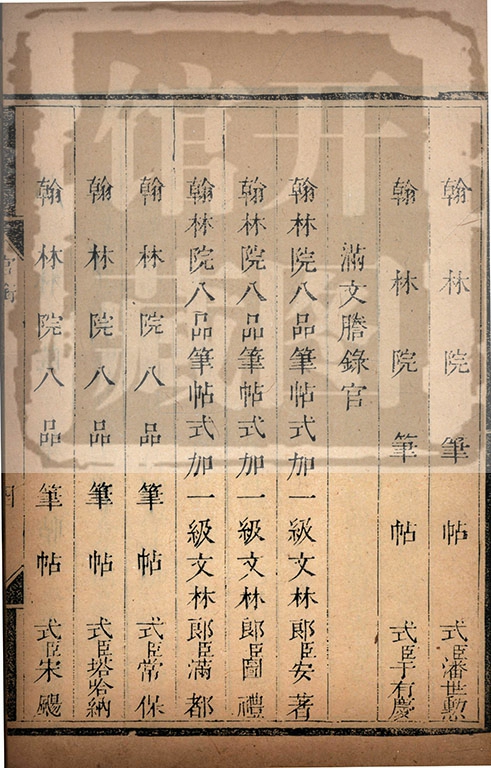 翰林院筆帖式臣潘世勳
翰林院筆帖式臣于有慶
滿文謄錄官
翰林院八品筆帖式加一級文林郎臣安著
翰林院八品筆帖式加一級文林郎臣圖禮
翰林院八品筆帖式加一級文林郎臣滿都
翰林院八品筆帖式臣常保
翰林院八品筆帖式臣塔哈納
翰林院八品筆帖式臣宋颺
官銜
四
开图
馆藏